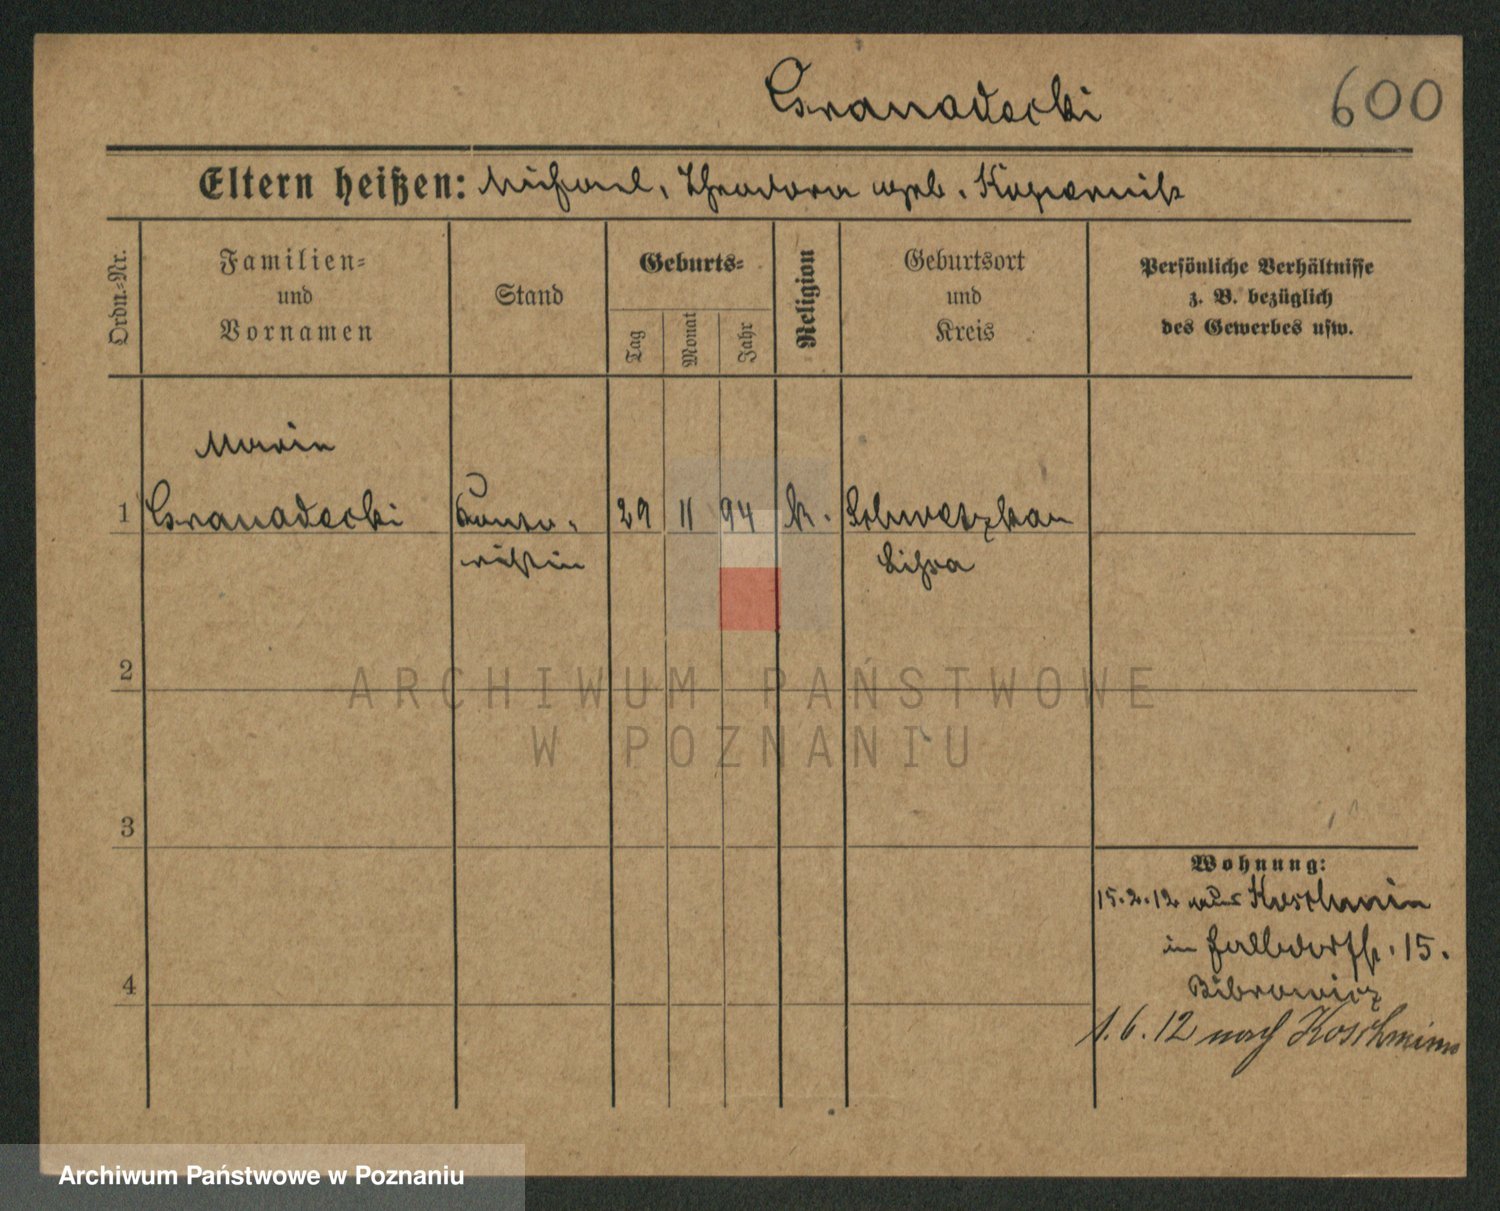 Granadecki 600
Eltern heißen: Michael, Theodora geb. Kopernik
Ordn.-Nr.
Familien-
und
Vornamen
Stand
Geburts-
Tag
Monat
Jahr
Religion
Geburtsort
und
Kreis
Persönliche Verhältnisse
z. B. bezüglich
des Gewerbes usw.
Maria
1 Granadecki Konto- 29 11 94 k. Schwetzkau
ristin Lissa
2
3
4
Wohnung:
15.2.12 aus Koschmin
in 15.
Bibrowicz
1.6.12 nach Koschmin
ARCHIWUM PAŃSTWOWE
W POZNANIU
Archiwum Państwowe w Poznaniu